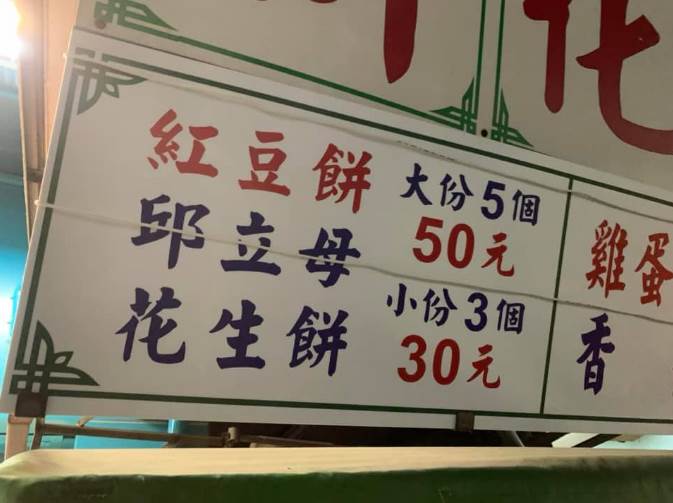 花
紅豆餅
邱立母
花生餅
大份5個
50元
小份3個
30元
雞蛋
香